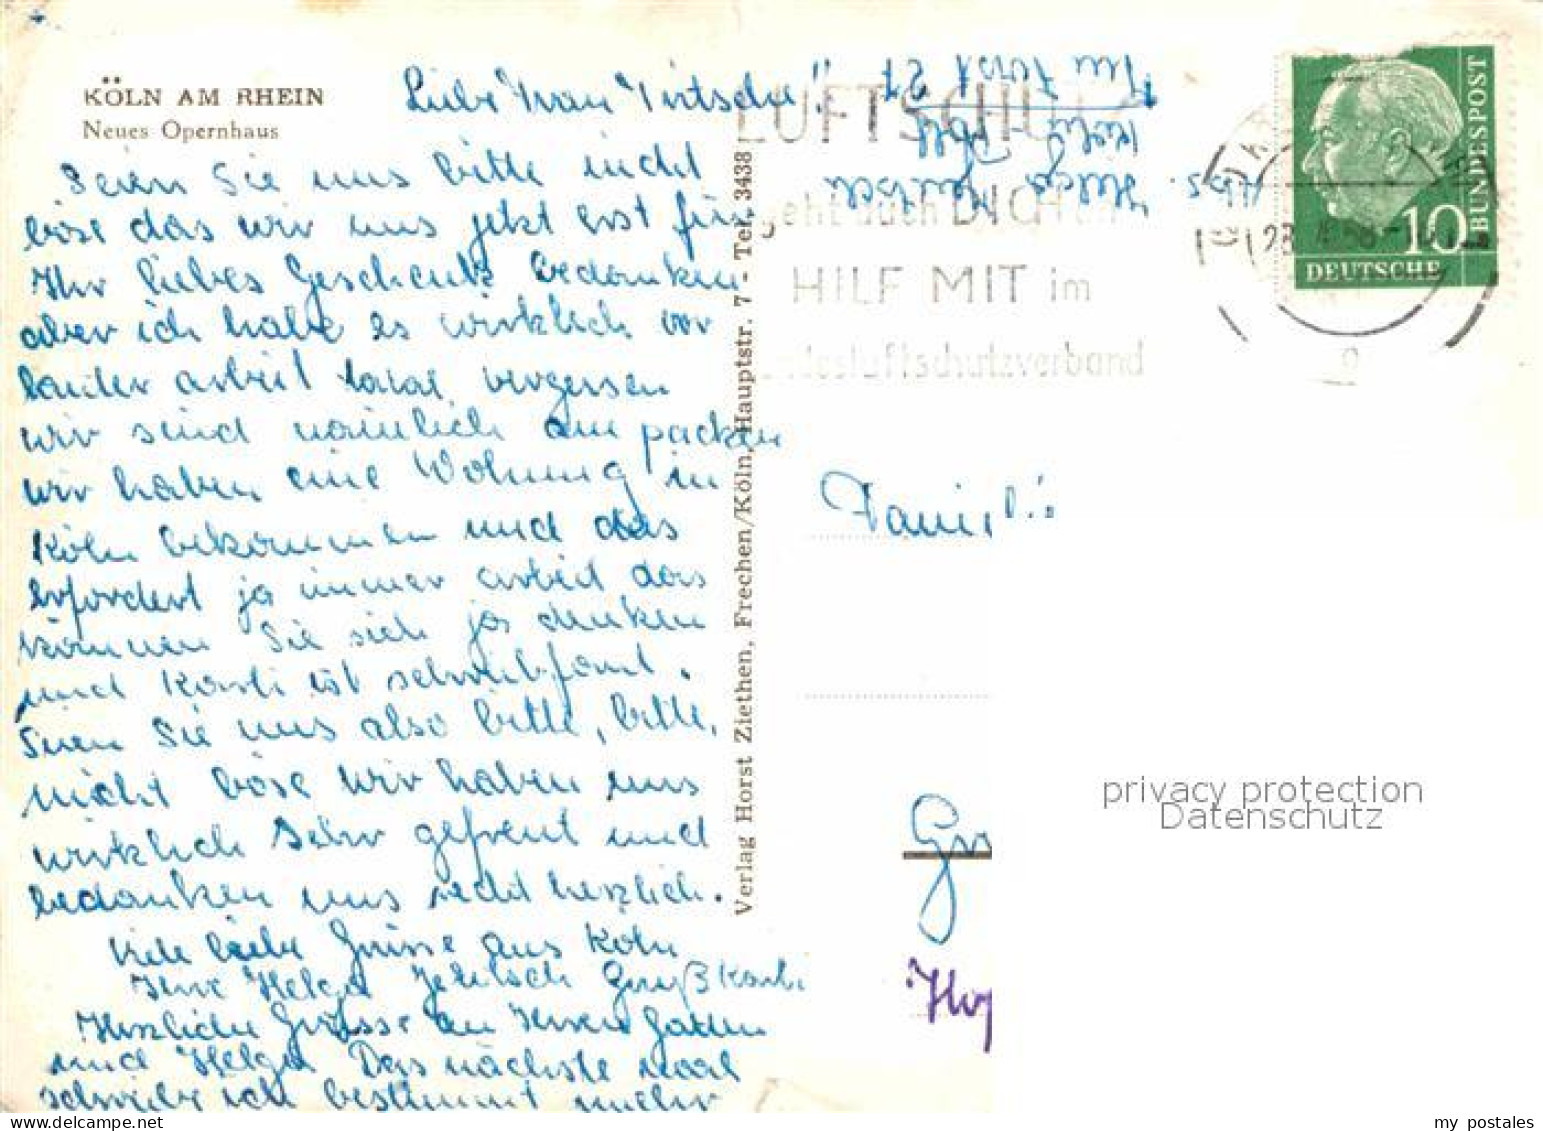 KÖLN AM RHEIN
Neues Opernhaus
Liebe Frau
Seien Sie uns bitte nicht
böse das wir uns jetzt erst für
Ihr liebes Geschenk bedanken
aber ich habe es wirklich vor
lauter arbeit total vergessen
wir sind nämlich am packen
wir haben eine Wohnung in
Köln bekommen und das
erfordert ja immer arbeit das
können Sie sich ja denken
und Karli ist schreibfaul.
Seien Sie uns also bitte, bitte,
nicht böse wir haben uns
wirklich sehr gefreut und
bedanken uns recht herzlich.
Viele liebe Grüsse aus Köln
Ihre Helga Gruß Karli
Herzliche Grüsse an Ihren Gatten
und Helga Das nächste mal
schreibe ich bestimmt mehr
Verlag Horst Ziethen, Frechen/Köln, Hauptstr. 7 - Tel. 3438
LUFTSCHUTZ
geht auch DICH an
HILF MIT im
desluftschutzverband
Helga
Köln
21
DEUTSCHE
BUNDESPOST
10
Familie
privacy protection
Datenschutz
my postales